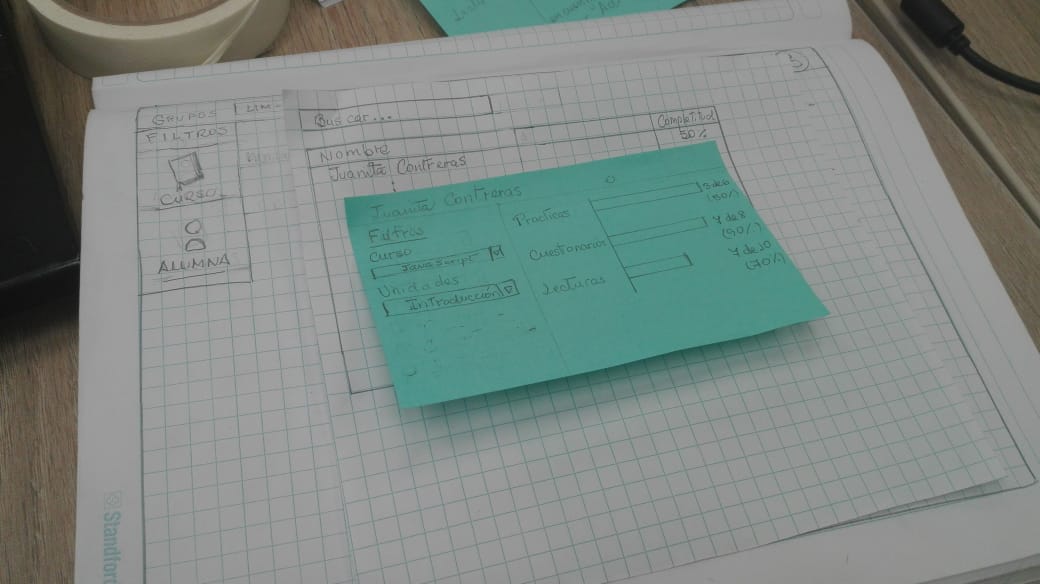 3
GRUPOS
LIM-
FILTROS
CURSO
ALUMNA
Buscar...
Nombre
Completitud
50%
Juanita Contreras
Juanita Contreras
Filtros
Curso
JavaScript
Unidades
Introducción
Practicas
(50%)
Cuestionarios
de 8
(90%)
Lecturas
7 de 10
(70%)
Standford